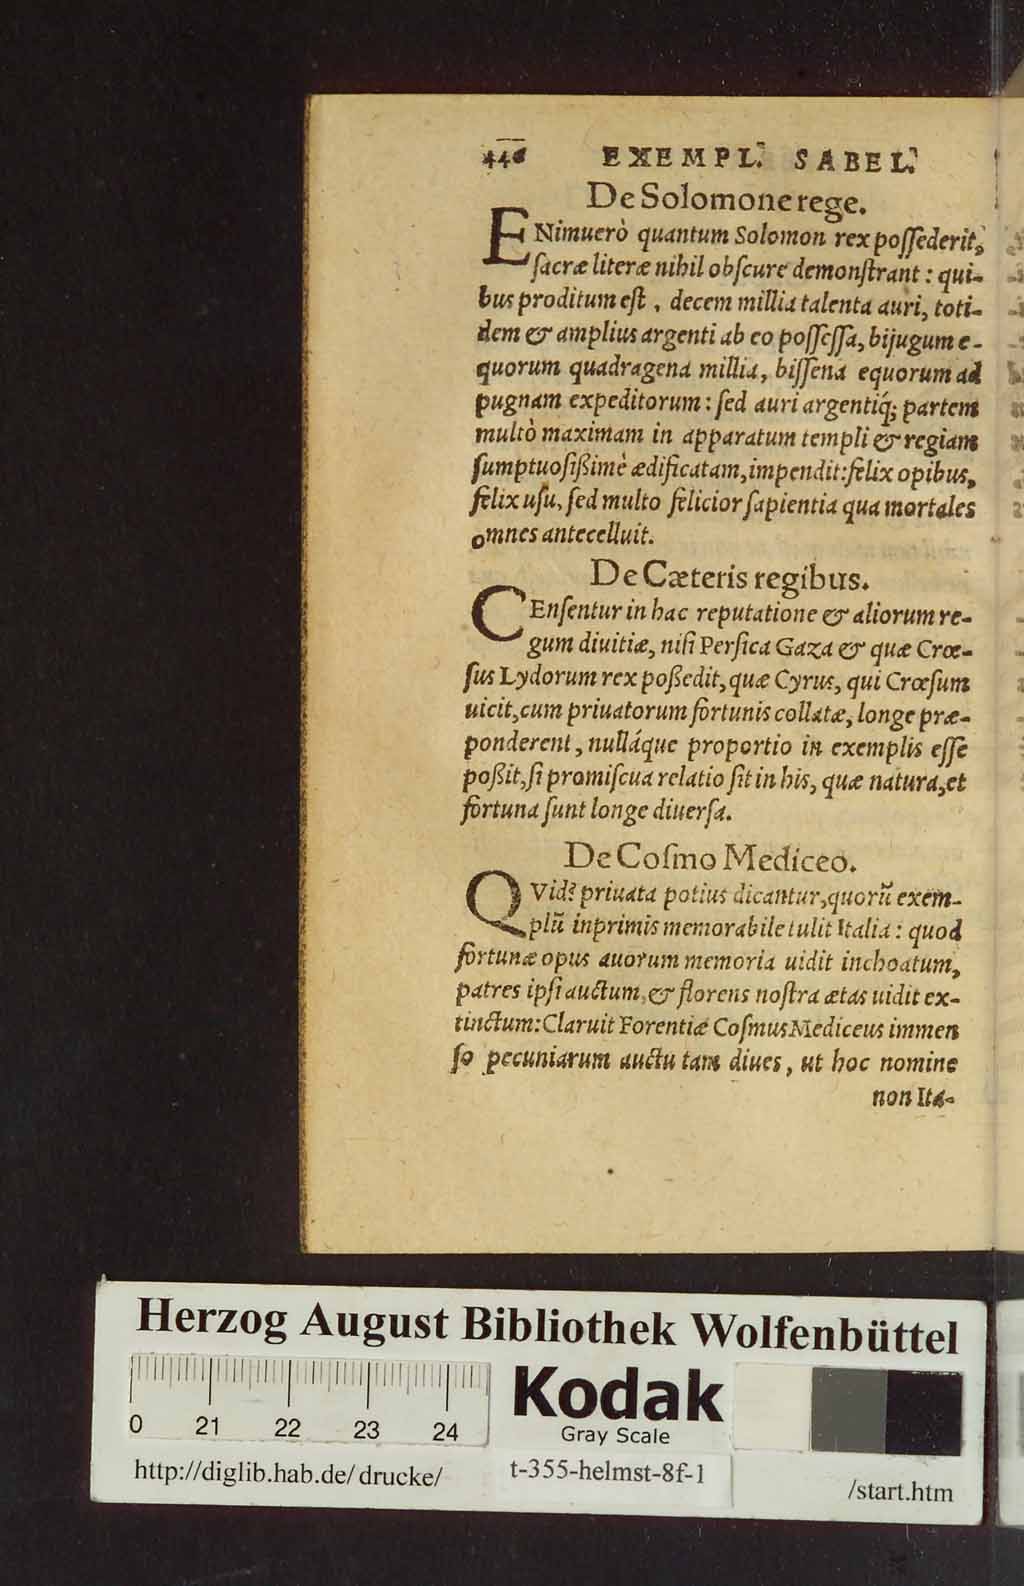 446 EXEMPL. SABEL.
De Solomone rege.
ENimuerò quantum Solomon rex poſſederit,
ſacræ literæ nihil obſcure demonſtrant: qui-
bus proditum eſt, decem millia talenta auri, toti-
dem & amplius argenti ab eo poſſeſſa, bijugum e-
quorum quadragena millia, biſſena equorum ad
pugnam expeditorum: ſed auri argentiq́; partem
multò maximam in apparatum templi & regiam
ſumptuoſißimè ædificatam, impendit: felix opibus,
felix uſu, ſed multo felicior ſapientia qua mortales
omnes antecelluit.
De Cæteris regibus.
CEnſentur in hac reputatione & aliorum re-
gum diuitiæ, niſi Perſica Gaza & quæ Crœ-
ſus Lydorum rex poßedit, quæ Cyrus, qui Crœſum
uicit, cum priuatorum fortunis collatæ, longe præ-
ponderent, nulláque proportio in exemplis eſſe
poßit, ſi promiſcua relatio ſit in his, quæ natura, et
fortuna ſunt longe diuerſa.
De Coſmo Mediceo.
QVid? priuata potius dicantur, quorũ exem-
plũ inprimis memorabile tulit Italia: quod
fortunæ opus auorum memoria uidit inchoatum,
patres ipſi auctum, & florens noſtra ætas uidit ex-
tinctum: Claruit Forentiæ Coſmus Mediceus immen
ſo pecuniarum auctu tam diues, ut hoc nomine
non Ita-
Herzog August Bibliothek Wolfenbüttel
0 21 22 23 24
Kodak
Gray Scale
http://diglib.hab.de/drucke/ t-355-helmst-8f-1 /start.htm